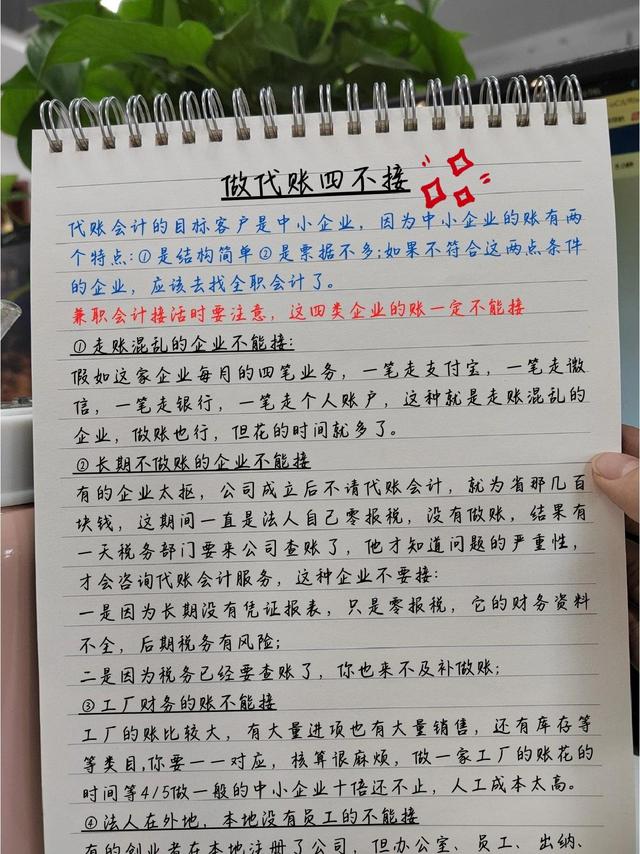 做代账四不接
代账会计的目标客户是中小企业，因为中小企业的账有两
个特点:①是结构简单②是票据不多;如果不符合这两点条件
的企业，应该去找全职会计了。
兼职会计接活时要注意，这四类企业的账一定不能接
①走账混乱的企业不能接:
假如这家企业每月的四笔业务，一笔走支付宝，一笔走微
信，一笔走银行，一笔走个人账户，这种就是走账混乱的
企业，做账也行，但花的时间就多了。
②长期不做账的企业不能接
有的企业太抠，公司成立后不请代账会计，就为省那几百
块钱，这期间一直是法人自己零报税，没有做账，结果有
一天税务部门要来公司查账了，他才知道问题的严重性，
才会咨询代账会计服务，这种企业不要接:
一是因为长期没有凭证报表，只是零报税，它的财务资料
不全，后期税务有风险;
二是因为税务已经要查账了，你也来不及补做账;
③工厂财务的账不能接
工厂的账比较大，有大量进项也有大量销售，还有库存等
等类目,你要一一对应，核算很麻烦，做一家工厂的账花的
时间等4/5做一般的中小企业十倍还不止，人工成本太高。
④法人在外地，本地没有员工的不能接
有的创业者在本地注册了公司，但办公室、员工、出纳、